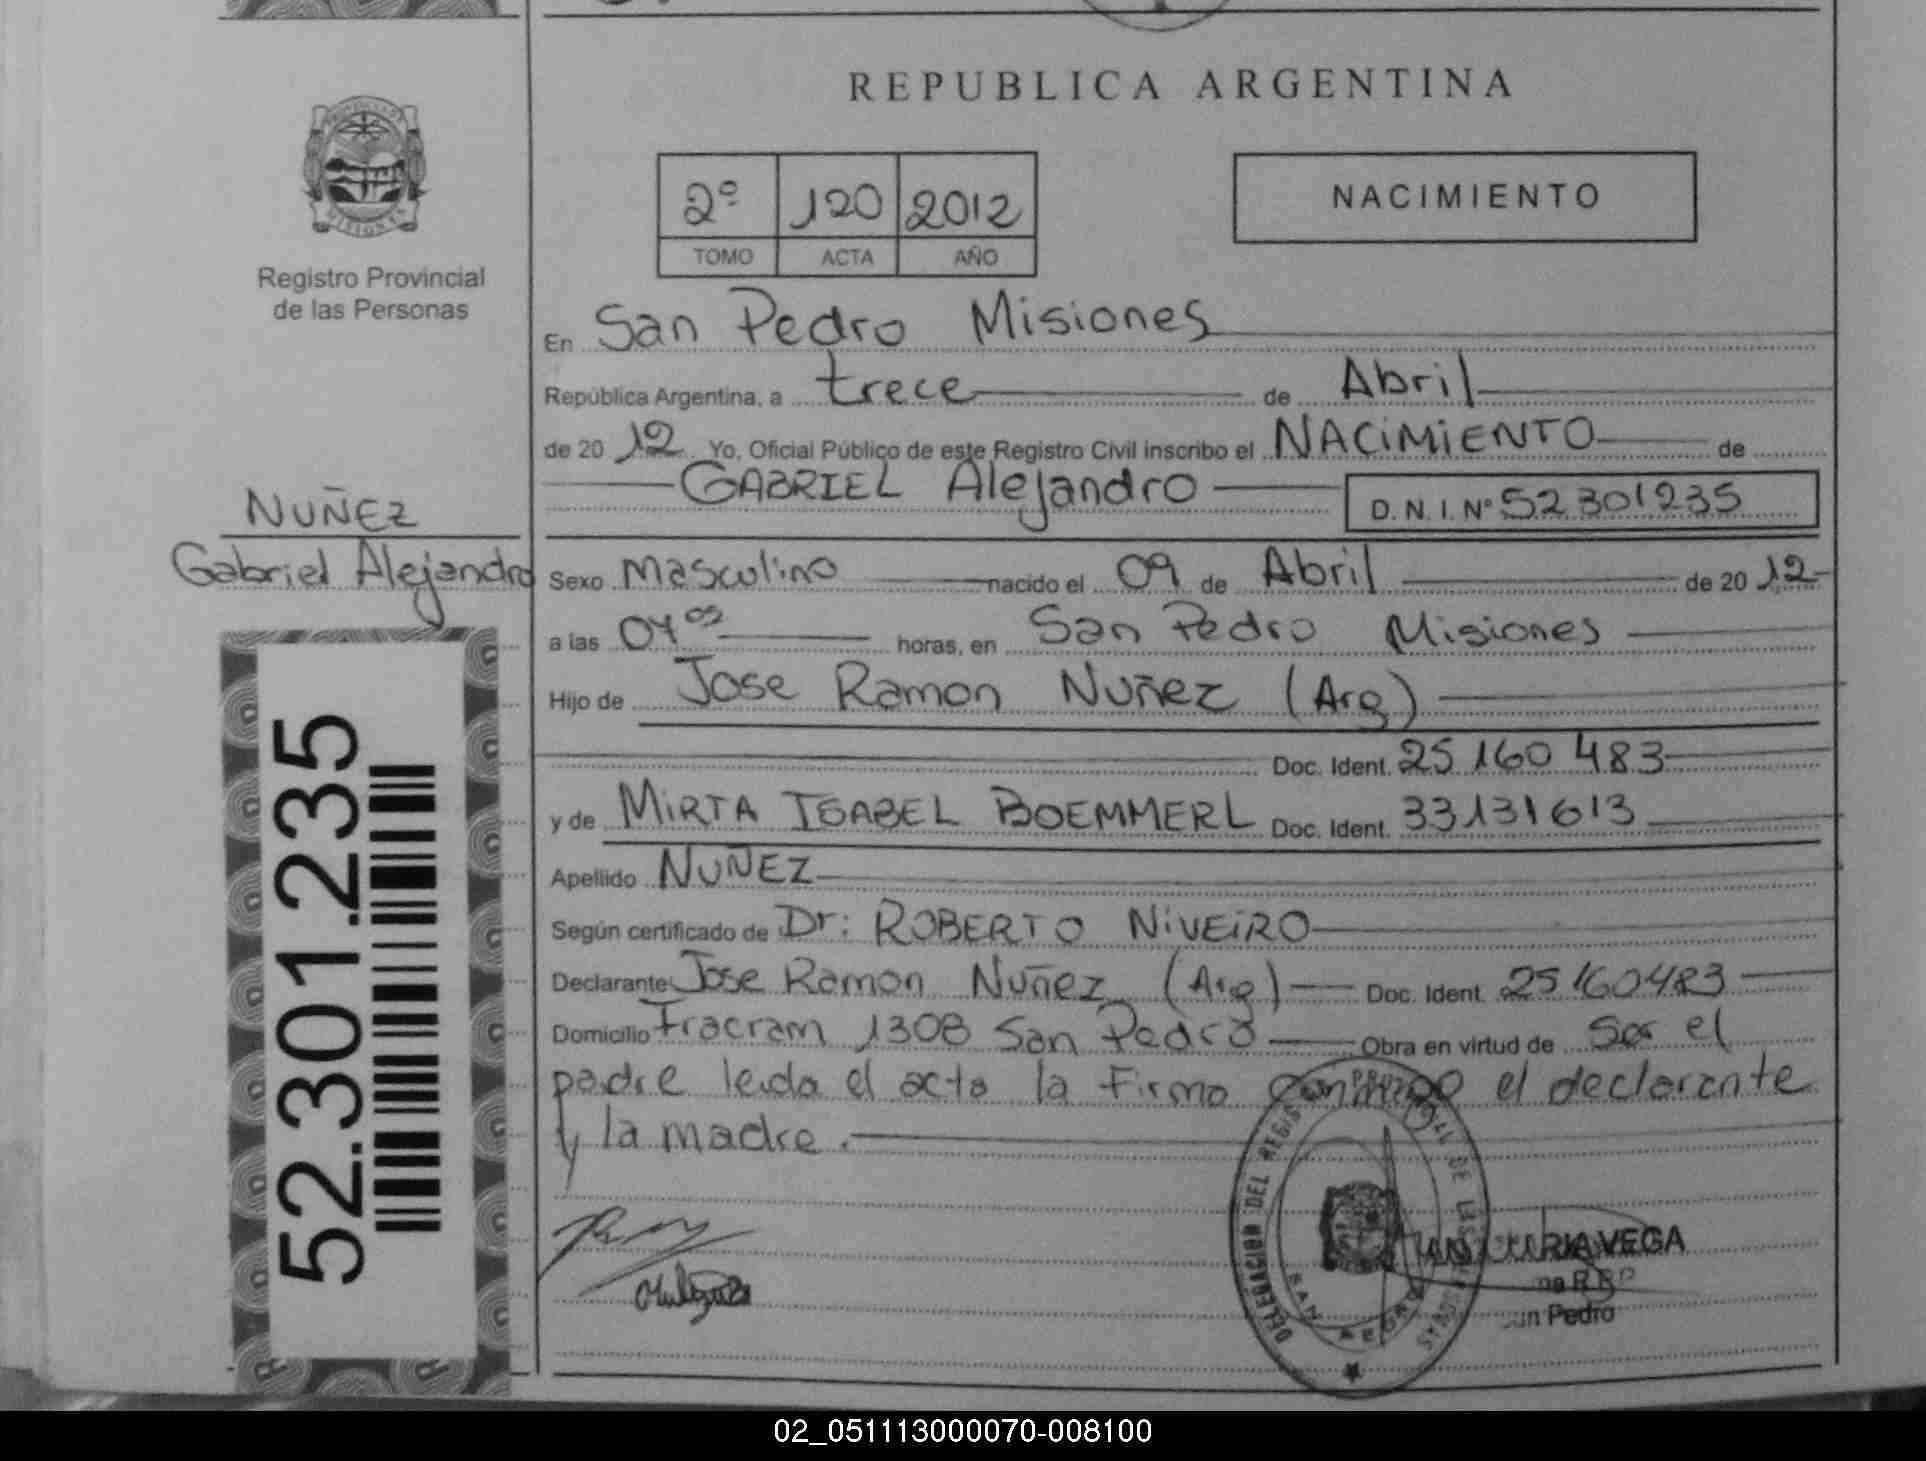 REPUBLICA ARGENTINA
2º 120 2012
TOMO ACTA AÑO
NACIMIENTO
Registro Provincial
de las Personas
En San Pedro Misiones
República Argentina, a trece de Abril
de 2012 Yo, Oficial Público de este Registro Civil inscribo el NACIMIENTO de
GABRIEL Alejandro D.N.I. Nº 52 301235
NUÑEZ
Gabriel Alejandro
Sexo Masculino nacido el 09 de Abril de 2012
a las 04 horas, en San Pedro Misiones
Hijo de Jose Ramon Nuñez (Arg)
Doc. Ident. 25 160 483
y de MIRTA ISABEL BOEMMERL Doc. Ident. 33131613
Apellido NUÑEZ
Según certificado de Dr: ROBERTO NIVEIRO
Declarante Jose Ramon Nuñez (Arg) Doc. Ident. 25160483
Domicilio Fracram 1308 San Pedro Obra en virtud de Ser el
padre leida el acta la Firma conmigo el declarante
y la madre.
52.301.235
DELEGACION DEL REGISTRO PROVINCIAL DE LAS PERSONAS
SAN PEDRO
VEGA
R.P.
Pedro
02_051113000070-008100